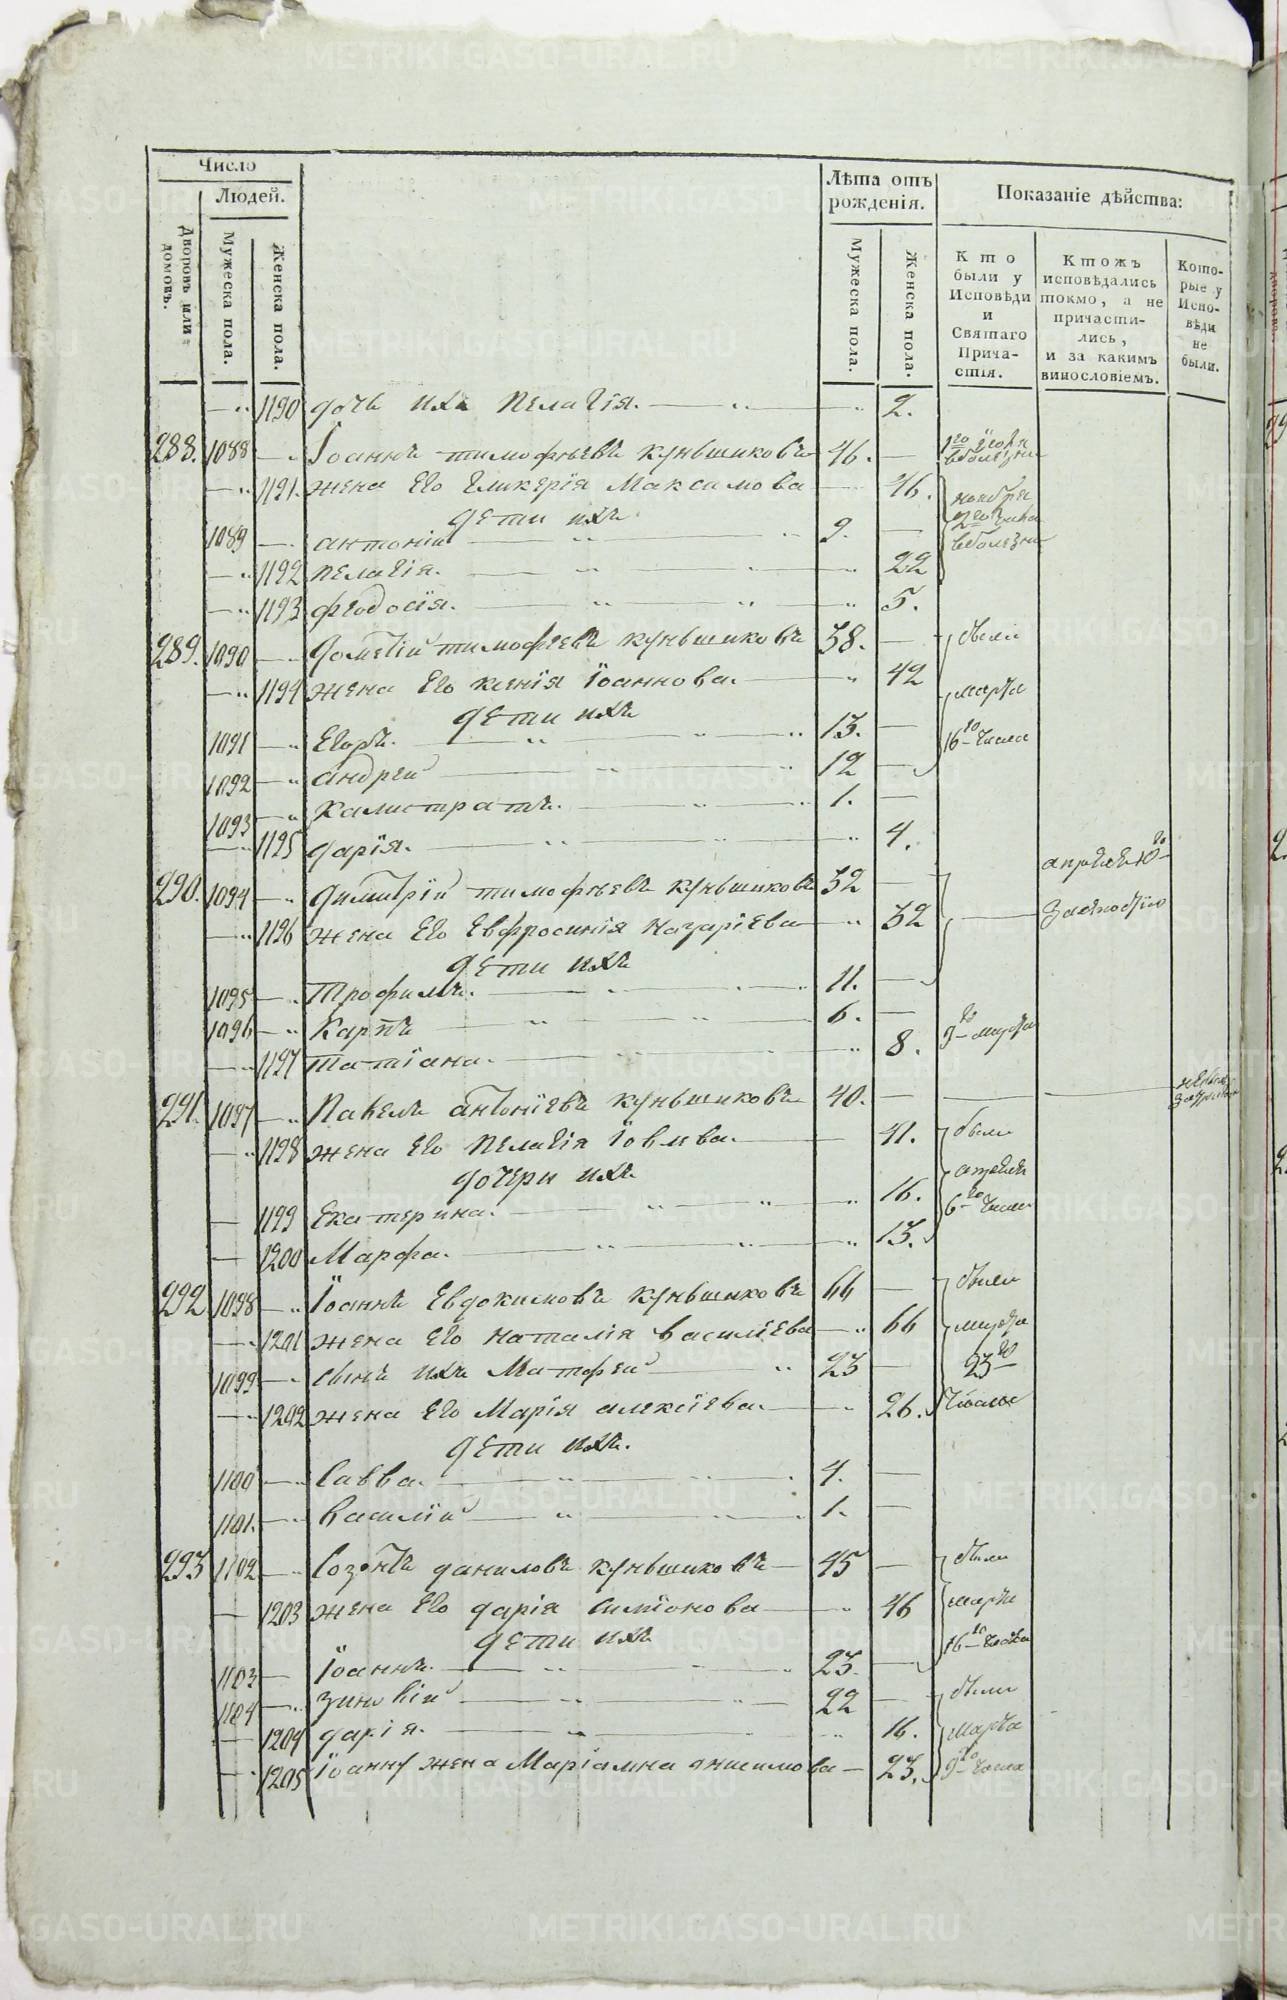 Число
Людей.
Дворовъ или домовъ.
Мужеска пола.
Женска пола.
Лѣта отъ рожденія.
Мужеска пола.
Женска пола.
Показаніе дѣйства:
Кто были у Исповѣди и Святаго Причастія.
Ктожъ исповѣдались токмо, а не причастились, и за какимъ винословіемъ.
Которые у Исповѣди не были.
1190 дочь ихъ Пелагія. 2.
288. 1088 Іоаннъ тимофѣевъ куньщиковъ 46.
1191. жена Его Гликерія Максимова 46.
дети ихъ
1089 антоній 9.
1192 пелагія. 22
1193 феодосія. 5.
ноября
289. 1090 дометій тимофеевъ куньщиковъ 38. были
1194 жена Его ксенія Іоаннова. 42 марта
дети ихъ
1091 Егоръ. 13. 16го числа
1092 андрей 12
1093 калистратъ. 1.
1195 дарія. 4.
290. 1094 димитрій тимофѣевъ куньщиковъ 32 апреля 10го
1196 жена Его Евфросинія назаріева 32
дети ихъ
1095 трофимъ. 11.
1096 Карпъ 6.
1197 татіана. 8. 9го марта
291. 1097 Павелъ антоніевъ куньщиковъ 40.
1198 жена Его пелагія Іовлева. 41. были
дочери ихъ апреля
1199 Екатерина. 16. 6го числа
1200 Марфа. 13.
292 1098 Іоаннъ Евдокимовъ куньщиковъ 66 были
1201 жена Его наталія василіева 66 марта
1099 сынъ ихъ Матфей 23 23го
1202 жена Его Марія алексіева. 26. числа
дети ихъ.
1100 Савва. 4.
1101. василій 1.
293 1102 Созонтъ даниловъ куньщиковъ 45 были
1203 жена Его дарія симіонова 46 марта
дети ихъ 16го числа
1103 Іоаннъ. 23.
1104 зиновій 22 были
1204 дарія. 16. марта
1205 Іоанну жена Маріамна анисимова 23. 9го числа
METRIKI.GASO-URAL.RU